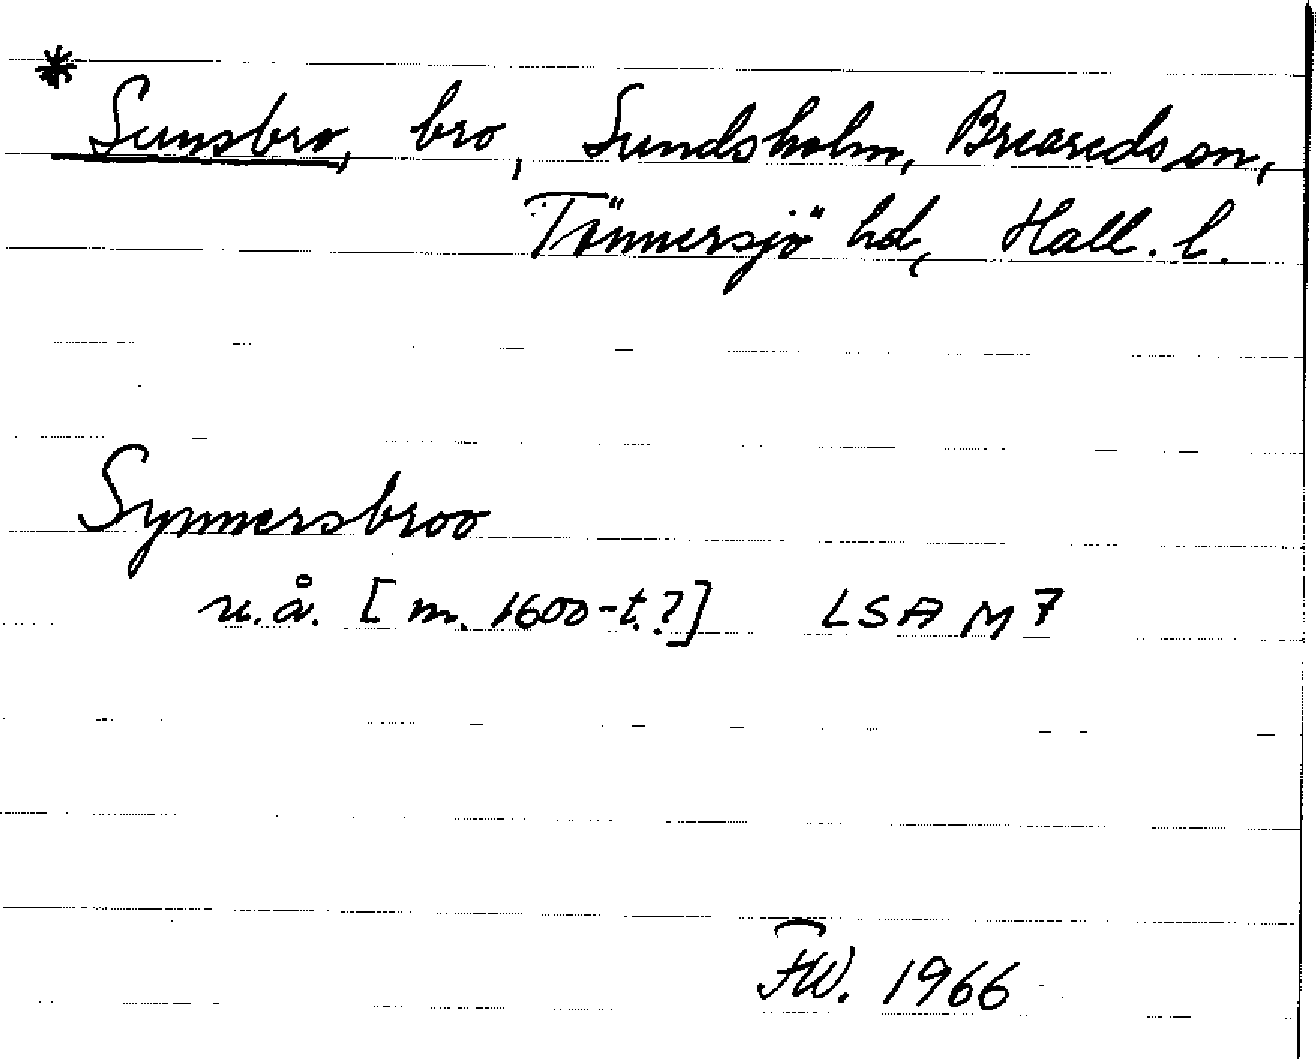 * Sunsbro, bro, Sundsholm, Breareds sn,
Tönnersjö hd, Hall. l.
Synnersbroo
u.å. [m. 1600-t.?] LSA M7
FW. 1966